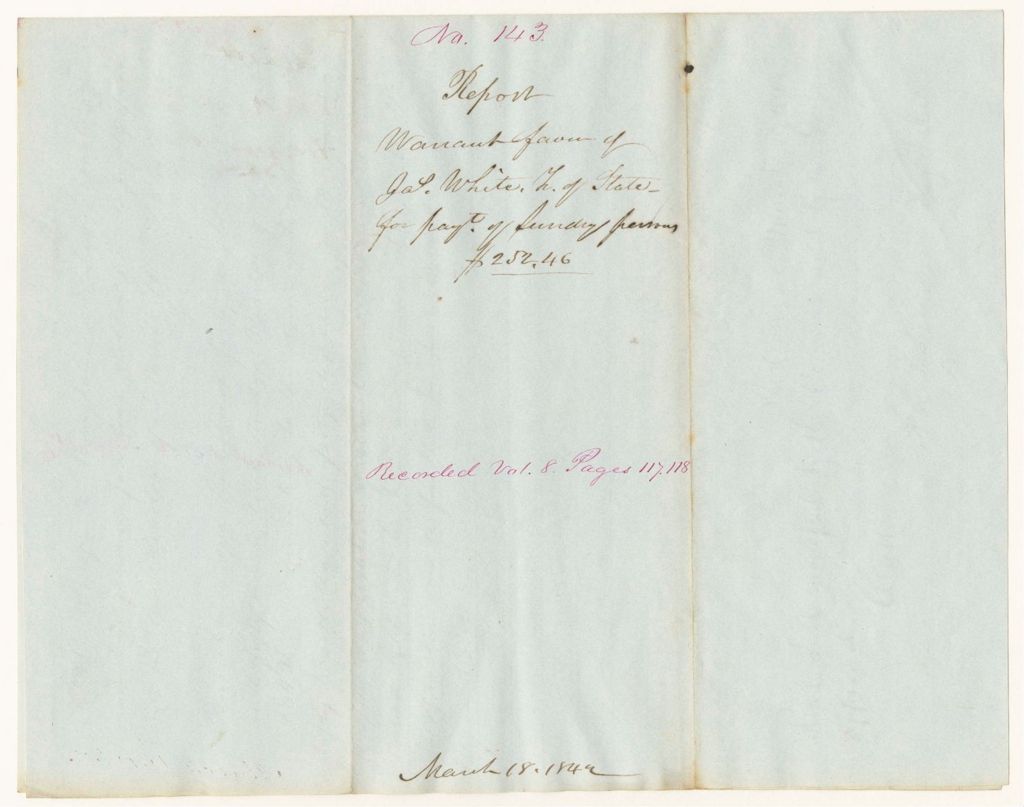 No. 143.
Report
Warrant favour of
Jas. White, T. of State
for payt. of sundry persons
$252.46
Recorded Vol. 8. Pages 117.118
March 18. 1842